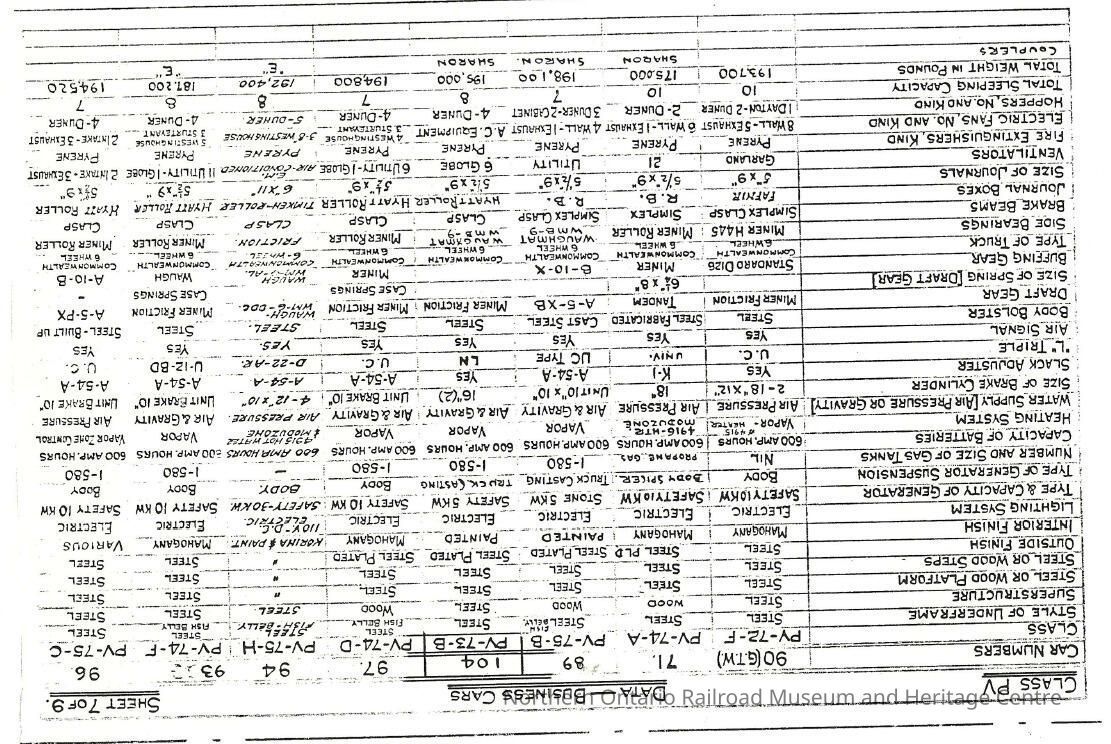 CLASS PV DATA BUSINESS CARS SHEET 7 OF 9.
CAR NUMBERS 90 (G.T.W) 71 89 104 97 94 93 96
CLASS PV-72-F PV-74-A PV-75-B PV-73-B PV-74-D PV-75-H PV-74-F PV-75-C
STYLE OF UNDERFRAME STEEL STEEL FISH BELLY STEEL STEEL FISH BELLY STEEL FISH-BELLY STEEL FISH BELLY STEEL
SUPERSTRUCTURE STEEL WOOD WOOD STEEL WOOD STEEL STEEL STEEL
STEEL OR WOOD PLATFORM STEEL STEEL STEEL STEEL STEEL " STEEL STEEL
STEEL OR WOOD STEPS STEEL STEEL STEEL STEEL STEEL " STEEL STEEL
OUTSIDE FINISH STEEL STEEL PL'D STEEL PLATED STEEL PLATED STEEL PLATED " STEEL STEEL
INTERIOR FINISH MAHOGANY MAHOGANY PAINTED PAINTED MAHOGANY KORINA & PAINT MAHOGANY VARIOUS
LIGHTING SYSTEM ELECTRIC ELECTRIC ELECTRIC ELECTRIC ELECTRIC 110V-D.C. ELECTRIC ELECTRIC ELECTRIC
TYPE & CAPACITY OF GENERATOR SAFETY 10KW SAFETY 10KW STONE 5KW SAFETY 5KW SAFETY 10 KW SAFETY-30KW. SAFETY 10 KW SAFETY 10 KW
TYPE OF GENERATOR SUSPENSION BODY BODY SPICER. TRUCK CASTING TRUCK CASTING BODY BODY BODY BODY
NUMBER AND SIZE OF GAS TANKS NIL PROPANE GAS. 1-580 1-580 1-580 - 1-580 1-580
CAPACITY OF BATTERIES 600 AMP HOURS 600 AMP HOURS 600 AMP. HOURS 600 AMP. HOURS 600 AMP. HOURS 600 AMP. HOURS 600 AMP. HOURS 600 AMP. HOURS
HEATING SYSTEM VAPOR- #4915 HEATER 4916-HTR MODUZONE VAPOR VAPOR VAPOR #4915 HOT WATER & MEDUZONE VAPOR VAPOR ZONE CONTROL
WATER SUPPLY [AIR PRESSURE OR GRAVITY] AIR PRESSURE AIR PRESSURE AIR & GRAVITY AIR & GRAVITY AIR & GRAVITY AIR PRESSURE AIR & GRAVITY AIR PRESSURE
SIZE OF BRAKE CYLINDER 2-18"x12" 18" UNIT 10"x 10" 16"(2) UNIT BRAKE 10" 4-12"x10" UNIT BRAKE 10" UNIT BRAKE 10"
SLACK ADJUSTER YES K-1 A-54-A YES A-54-A A-54-A A-54-A A-54-A
"L" TRIPLE U.C. UNIV. UC TYPE LN U.C. D-22-AR. U-12-BD U.C.
AIR SIGNAL YES YES YES YES YES YES. YES YES
BODY BOLSTER STEEL STEEL FABRICATED CAST STEEL STEEL STEEL STEEL. STEEL STEEL-BUILT UP
DRAFT GEAR MINER FRICTION TANDEM A-5-XB MINER FRICTION MINER FRICTION WAUGH WM-6-DDG. MINER FRICTION A-5-PX
SIZE OF SPRING [DRAFT GEAR] 6¼"x 8" CASE SPRINGS CASE SPRINGS -
BUFFING GEAR STANDARD D2126 MINER B-10-X MINER WAUGH WAUGH A-10-B
TYPE OF TRUCK COMMONWEALTH 6 WHEEL COMMONWEALTH 6 WHEEL COMMONWEALTH 6 WHEEL COMMONWEALTH 6 WHEEL COMMONWEALTH 6 WHEEL COMMONWEALTH 6-WHEEL COMMONWEALTH 6 WHEEL COMMONWEALTH 6 WHEEL
SIDE BEARINGS MINER MINER ROLLER WAUGHMAT W.M.B-9 WAUGHMAT W.M.B-9 MINER ROLLER FRICTION. MINER ROLLER MINER ROLLER
BRAKE BEAMS SIMPLEX CLASP SIMPLEX SIMPLEX CLASP CLASP CLASP CLASP CLASP CLASP
JOURNAL BOXES FAFNIR R.B. R.B. HYATT ROLLER HYATT ROLLER TIMKEN-ROLLER HYATT ROLLER HYATT ROLLER
SIZE OF JOURNALS 5"x9" 5½"x9" 5½x9" 5½x9" 5½"x9" 6"X11" 5½"x9" 5½"x9"
VENTILATORS GARLAND 21 UTILITY 6 GLOBE 6 UTILITY-1 GLOBE AIR-CONDITIONED 11 UTILITY-1 GLOBE 2 INTAKE-3 EXHAUST
FIRE EXTINGUISHERS, KIND PYRENE PYRENE PYRENE PYRENE PYRENE PYRENE PYRENE PYRENE
ELECTRIC FANS, NO. AND KIND 8 WALL-5 EXHAUST 6 WALL-1 EXHAUST 4 WALL-1 EXHAUST A.C. EQUIPMENT 4 WESTINGHOUSE 3 STURTEVANT 3-8 WESTINGHOUSE 5 WESTINGHOUSE 3 STURTEVANT 2 INTAKE-3 EXHAUST
HOPPERS, NO. AND KIND 1 DAYTON-2 DUNER 2-DUNER 3 DUNER-2 CABINET 4-DUNER 5-DUNER 4-DUNER 4-DUNER
TOTAL SLEEPING CAPACITY 10 10 7 8 7 8 8 7
TOTAL WEIGHT IN POUNDS 193700 175,000 198,100 195,000 194,800 192,400 187,200 194,520
COUPLERS SHARON SHARON. SHARON "E" "E"
Northern Ontario Railroad Museum and Heritage Centre